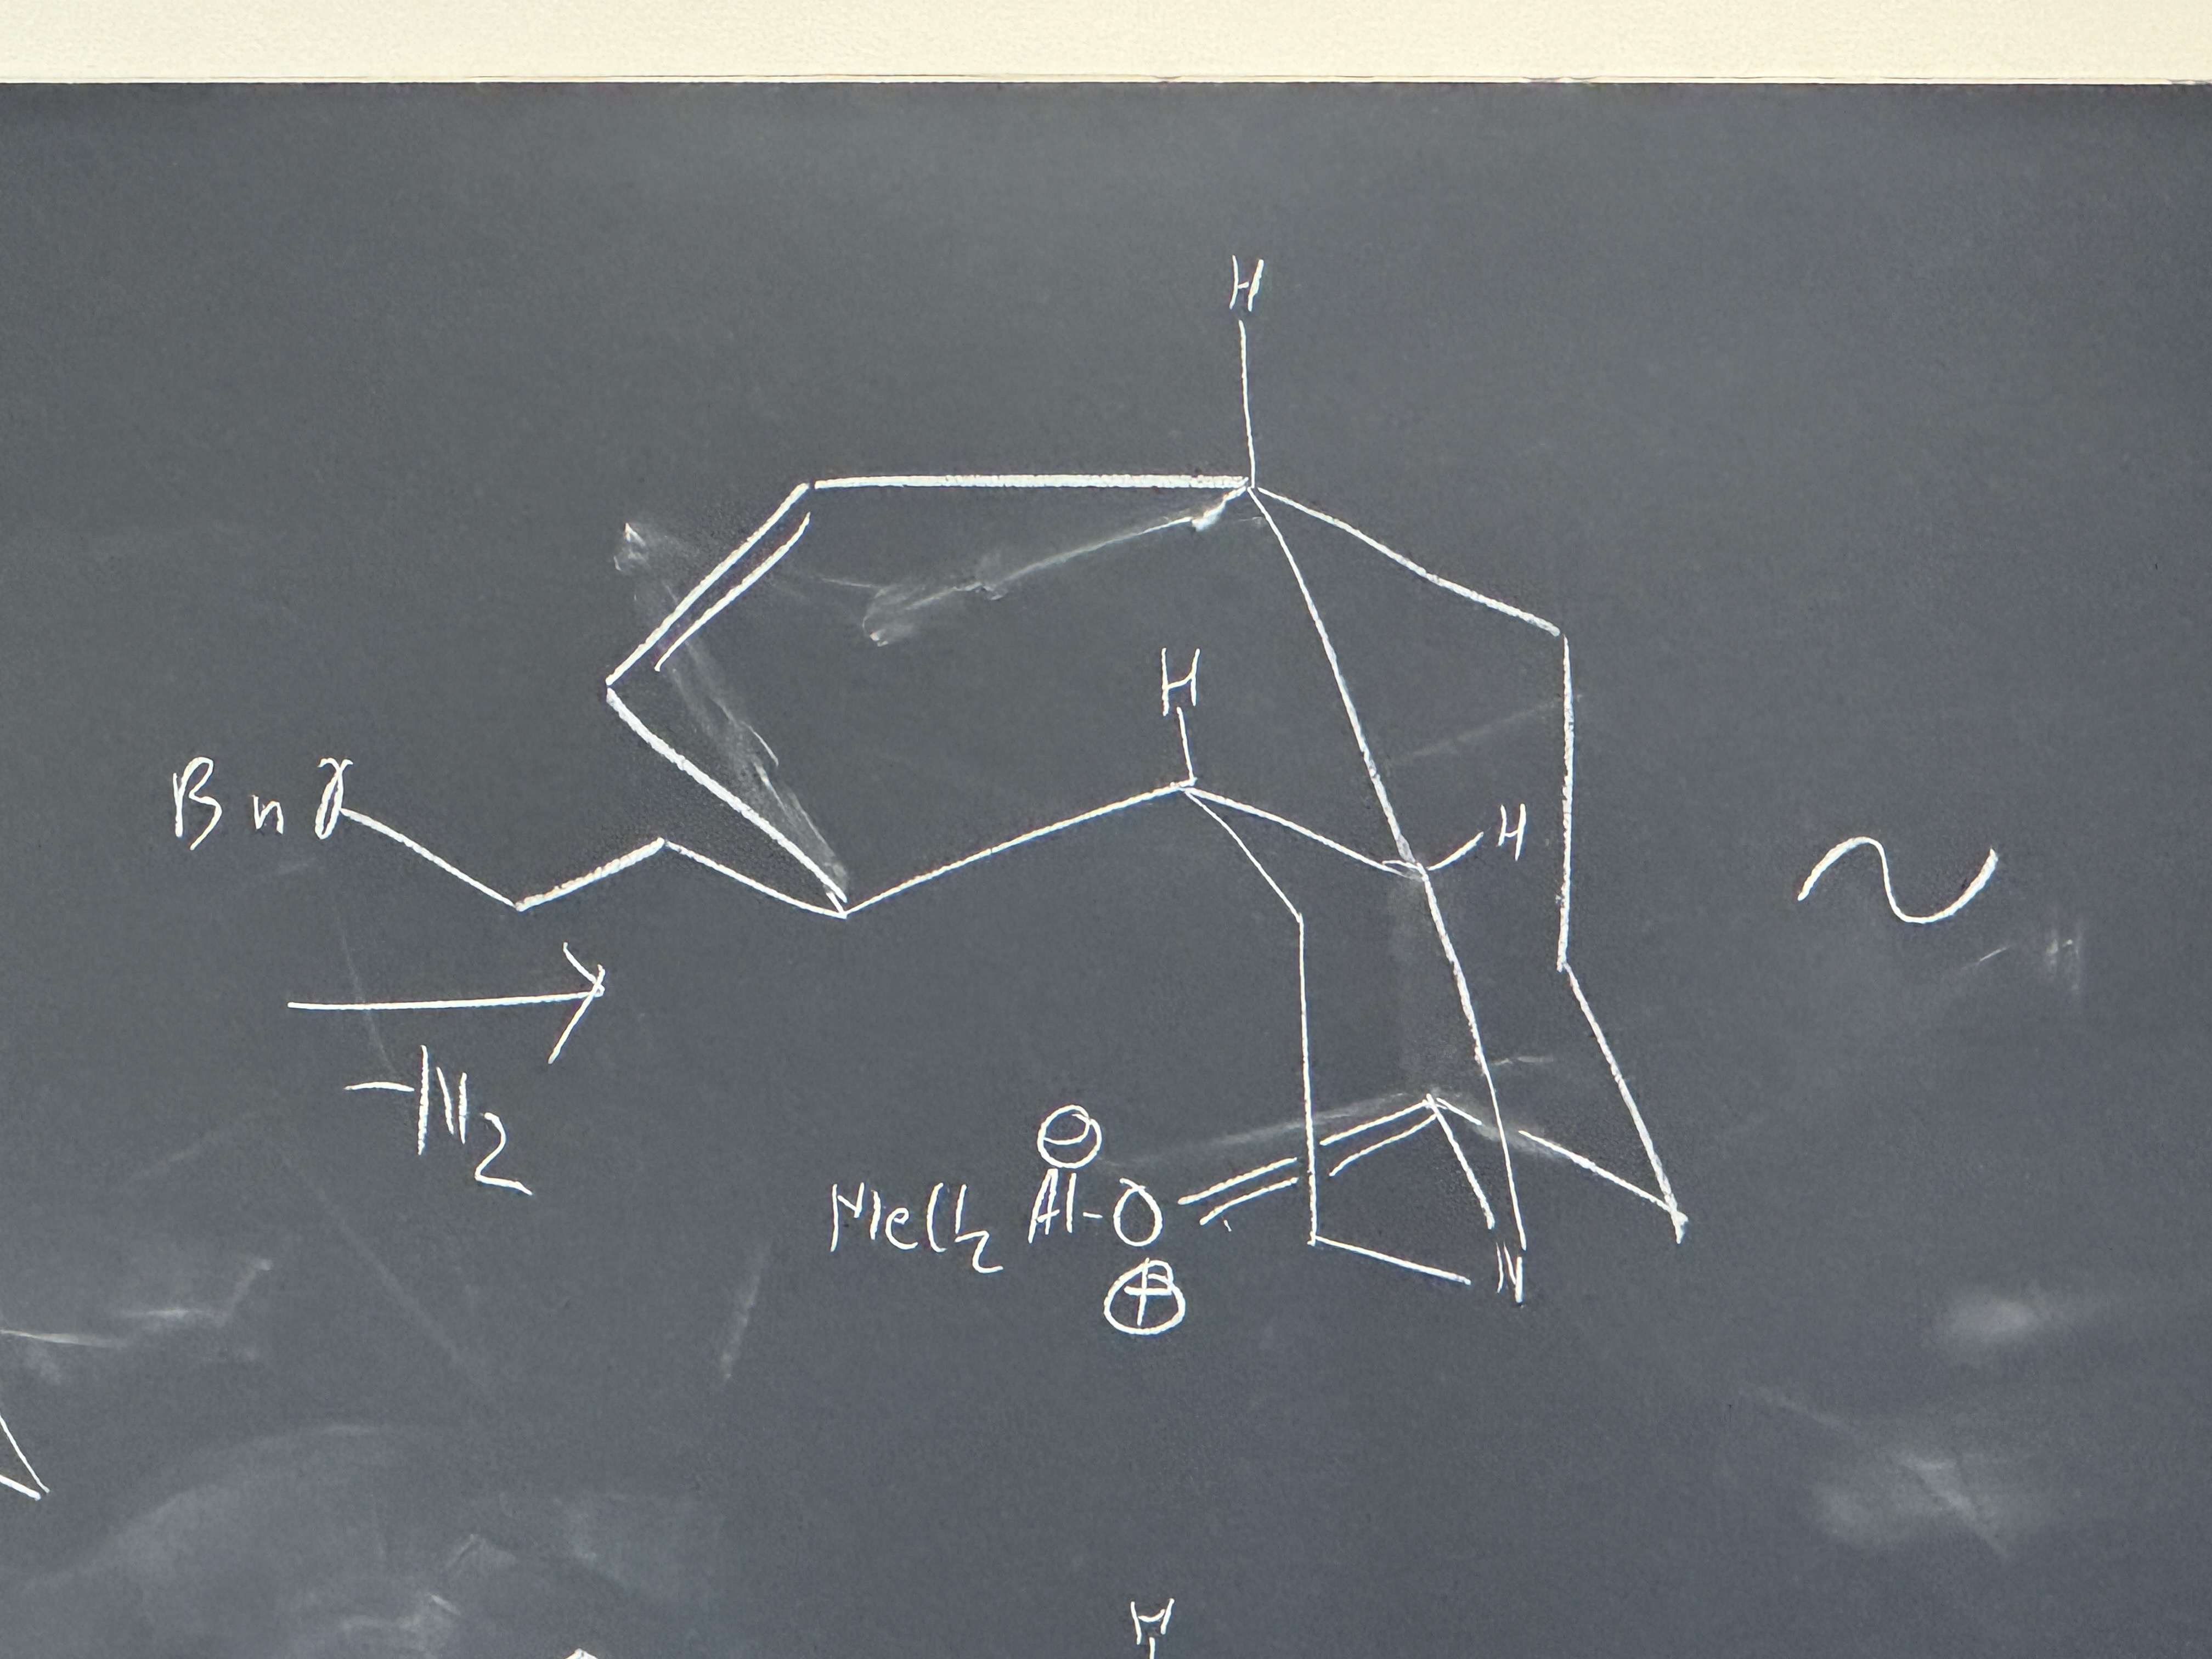 H
H
BnO
H
-N2
⊖
MeCl2 Al-O
N
⊕
H